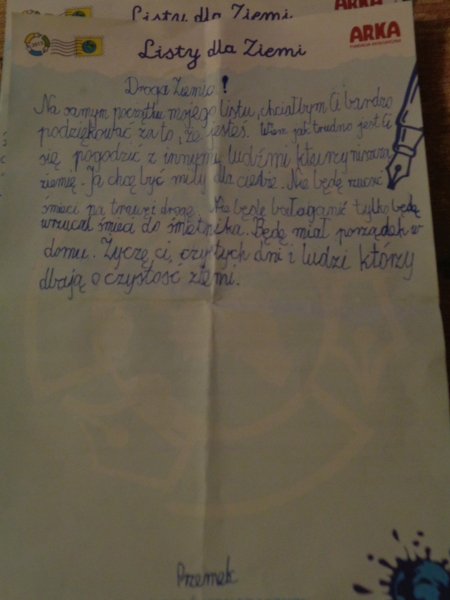 Listy dla Ziemi
ARKA
Listy dla Ziemi
Droga Ziemio!
Na samym początku mojego listu, chciałbym Ci bardzo
podziękować za to, że jesteś. Wiem jak trudno jest Ci
się pogodzić z innymi ludźmi którzy niszczą
ziemię. Ja chcę być miły dla ciebie. Nie będę rzucać
śmieci na trawę i drogę. Nie będę bałaganić tylko będę
wrzucał śmieci do śmietnika. Będę miał porządek w
domu. Życzę ci, czystych dni i ludzi którzy
dbają o czystość ziemi.
Przemek